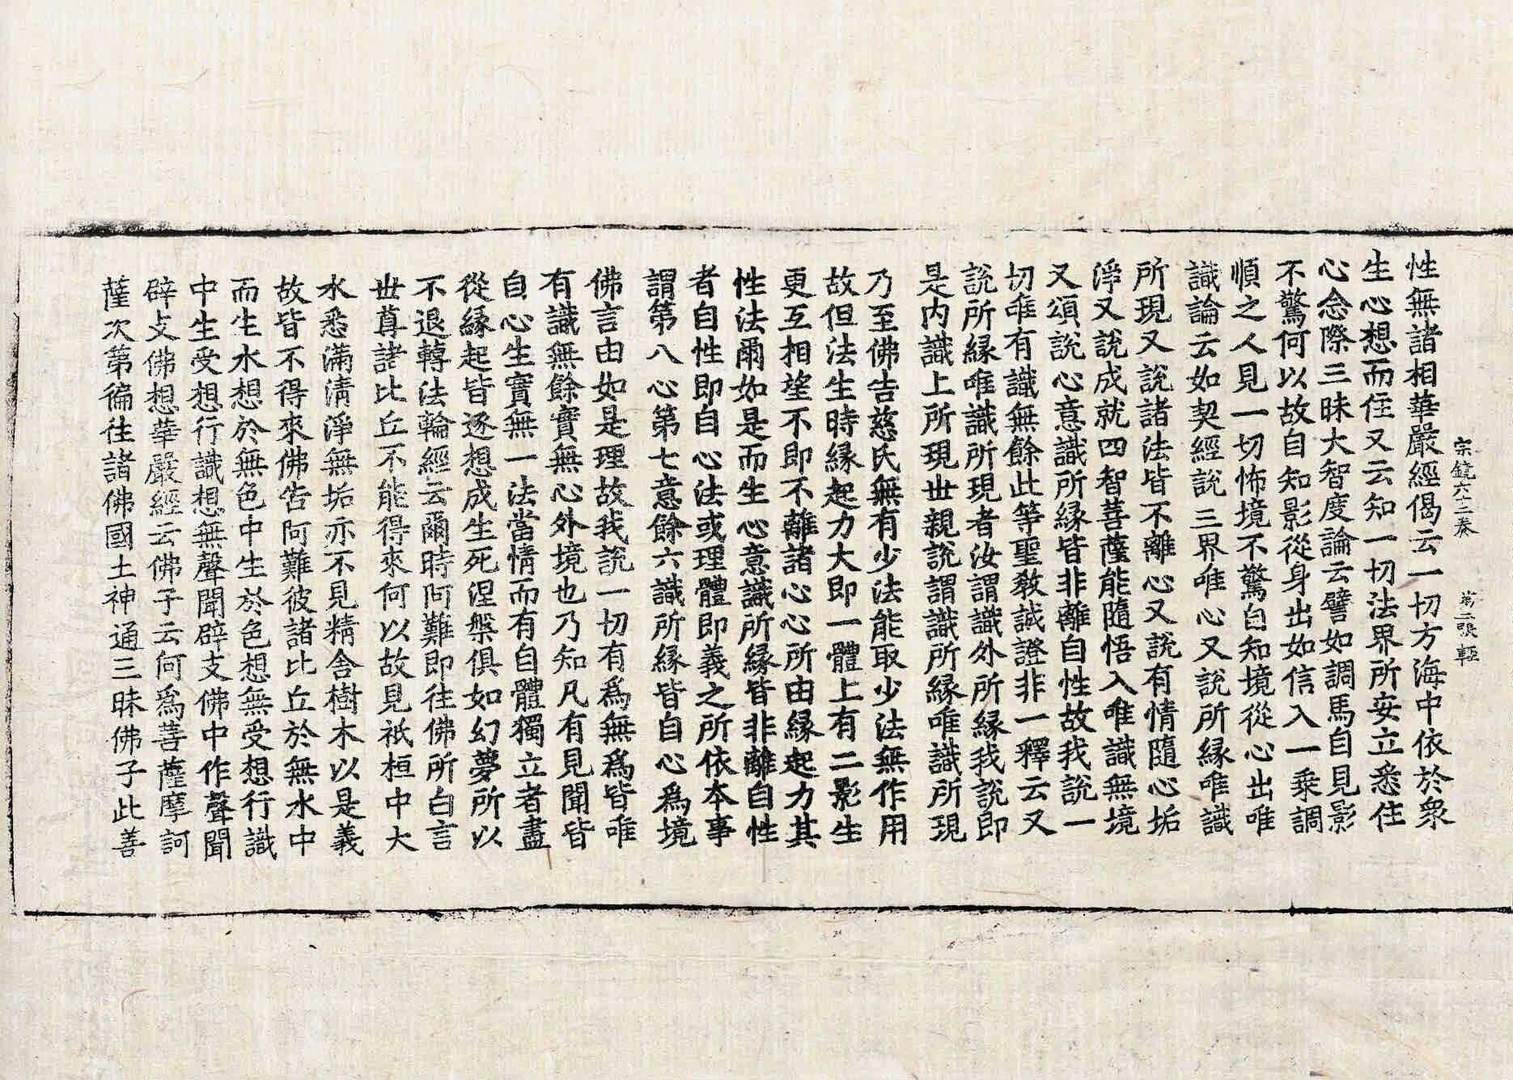 宗鏡六十二卷 第二張 輕
性無諸相華嚴經偈云一切方海中依於衆
生心想而住又云知一切法界所安立悉住
心念際三昧大智度論云譬如調馬自見影
不驚何以故自知影從身出如信入一乘調
順之人見一切怖境不驚自知境從心出唯
識論云如契經說三界唯心又說所緣唯識
所現又說諸法皆不離心又說有情隨心垢
淨又說成就四智菩薩能隨悟入唯識無境
又頌說心意識所緣皆非離自性故我說一
切唯有識無餘此等聖教誠證非一釋云又
說所緣唯識所現者汝謂識外所緣我說即
是內識上所現世親說謂識所緣唯識所現
乃至佛告慈氏無有少法能取少法無作用
故但法生時緣起力大即一體上有二影生
更互相望不即不離諸心心所由緣起力其
性法爾如是而生心意識所緣皆非離自性
者自性即自心法或理體即義之所依本事
謂第八心第七意餘六識所緣皆自心爲境
佛言由如是理故我說一切有爲無爲皆唯
有識無餘實無心外境也乃知凡有見聞皆
自心生實無一法當情而有自體獨立者盡
從緣起皆逐想成生死涅槃俱如幻夢所以
不退轉法輪經云爾時阿難即往佛所白言
世尊諸比丘不能得來何以故見祇桓中大
水悉滿清淨無垢亦不見精舍樹木以是義
故皆不得來佛告阿難彼諸比丘於無水中
而生水想於無色中生於色想無受想行識
中生受想行識想無聲聞辟支佛中作聲聞
辟支佛想華嚴經云佛子云何爲菩薩摩訶
薩次第徧往諸佛國土神通三昧佛子此菩